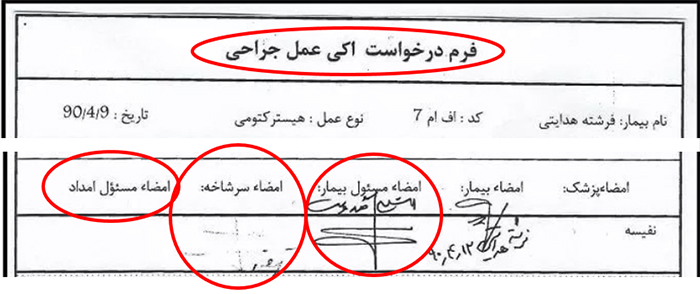 فرم درخواست اکی عمل جراحی
نام بیمار: فرشته هدایتی کد : اف ام 7 نوع عمل : هیسترکتومی تاریخ : 90/4/9
امضاءپزشک: امضاء بیمار: امضاء مسئول بیمار: امضاء سرشاخه: امضاء مسئول امداد
نفیسه
فرشته هدایتی
۹۰,۴,۱۲